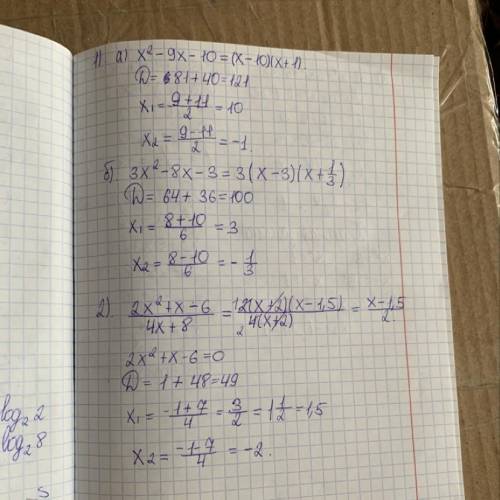 1) а) x² - 9x - 10 = (x - 10)(x + 1).
D = 81 + 40 = 121
x₁ = (9 + 11)/2 = 10
x₂ = (9 - 11)/2 = -1.
б) 3x² - 8x - 3 = 3(x - 3)(x + 1/3)
D = 64 + 36 = 100
x₁ = (8 + 10)/6 = 3
x₂ = (8 - 10)/6 = - 1/3
2) (2x² + x - 6)/(4x + 8) = 2(x + 2)(x - 1,5)/4(x + 2) = (x - 1,5)/2.
2x² + x - 6 = 0
D = 1 + 48 = 49
x₁ = (-1 + 7)/4 = 3/2 = 1 1/2 = 1,5
x₂ = (-1 - 7)/4 = -2.
log₂ 2
log₂ 8